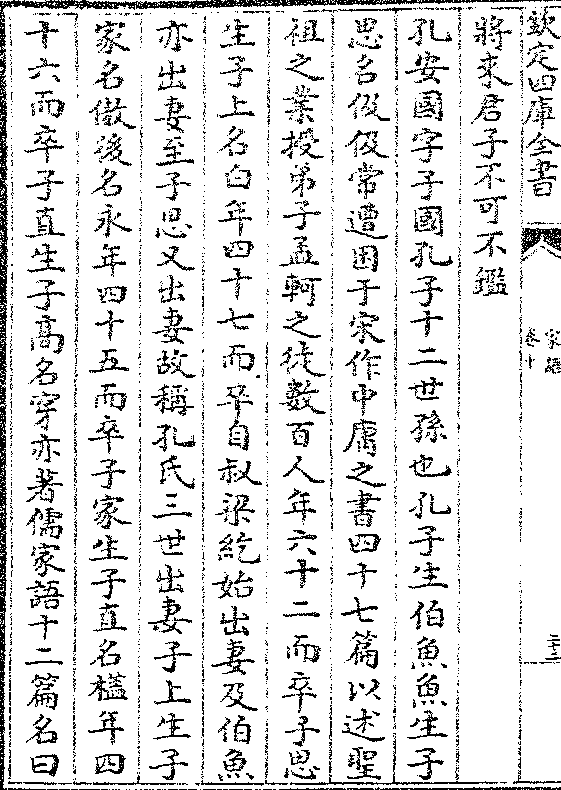 欽定四庫全書
家語
卷十
二十二
將來君子不可不鑑
孔安國字子國孔子十二世孫也孔子生伯魚魚生子
思名伋伋常遭困于宋作中庸之書四十七篇以述聖
祖之業授弟子孟軻之徒數百人年六十二而卒子思
生子上名白年四十七而卒自叔梁紇始出妻及伯魚
亦出妻至子思又出妻故稱孔氏三世出妻子上生子
家名傲後名永年四十五而卒子家生子直名榼年四
十六而卒子直生子高名穿亦著儒家語十二篇名曰